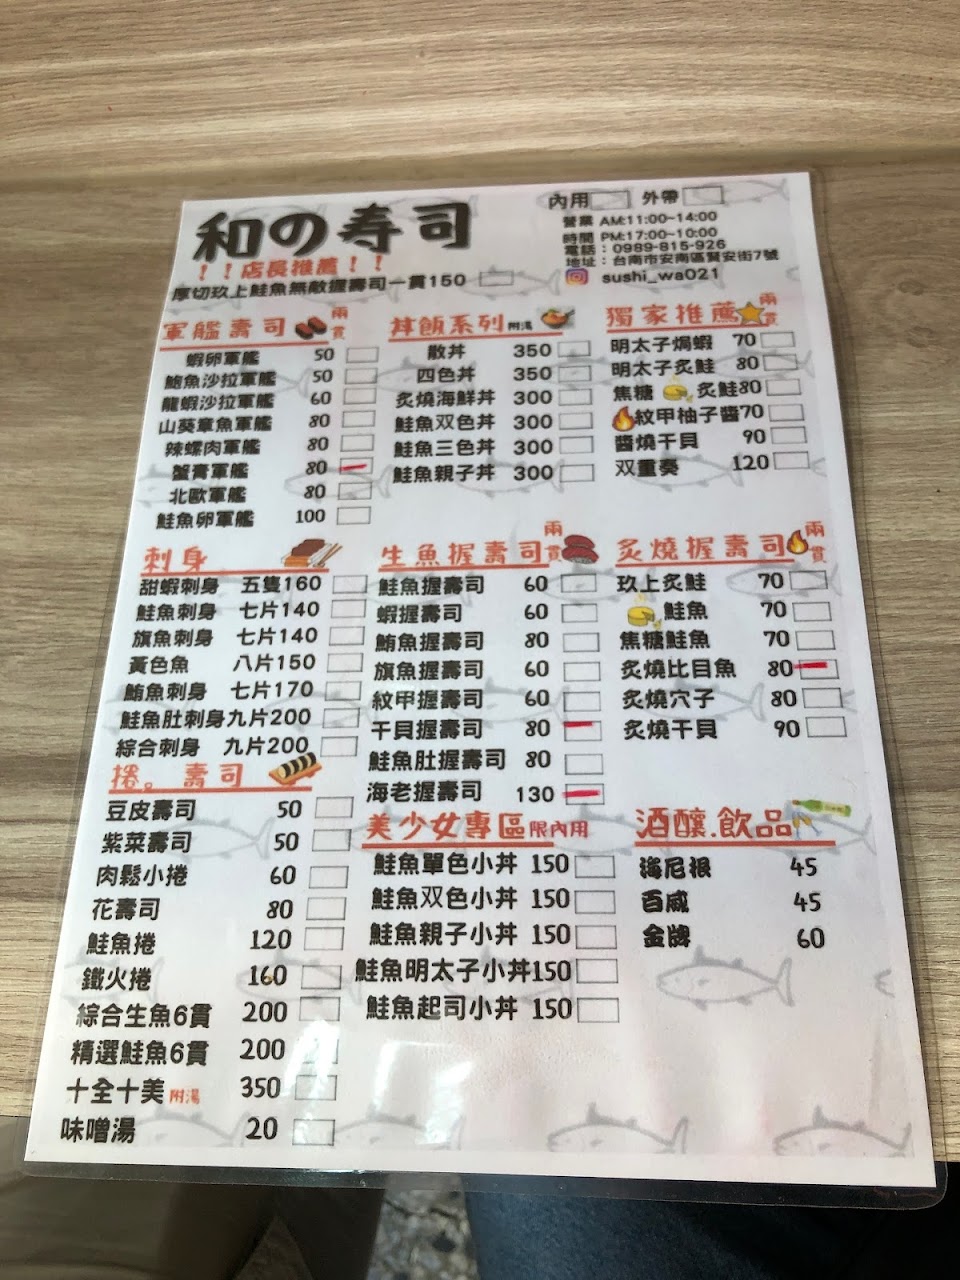 和の寿司
內用
外帶
營業 AM:11:00~14:00
時間 PM:17:00~10:00
電話：0989-815-926
地址：台南市安南區賢安街7號
sushi_wa021
！！店長推薦！！
厚切玖上鮭魚無敵握壽司一貫150
軍艦壽司 兩貫
蝦卵軍艦 50
鮪魚沙拉軍艦 50
龍蝦沙拉軍艦 60
山葵章魚軍艦 80
辣螺肉軍艦 80
蟹膏軍艦 80
北歐軍艦 80
鮭魚卵軍艦 100
丼飯系列 附湯
散丼 350
四色丼 350
炙燒海鮮丼 300
鮭魚双色丼 300
鮭魚三色丼 300
鮭魚親子丼 300
獨家推薦 兩貫
明太子焗蝦 70
明太子炙鮭 80
焦糖 炙鮭80
紋甲柚子醬70
醬燒干貝 90
双重奏 120
刺身
甜蝦刺身 五隻160
鮭魚刺身 七片140
旗魚刺身 七片140
黃色魚 八片150
鮪魚刺身 七片170
鮭魚肚刺身九片200
綜合刺身 九片200
生魚握壽司 兩貫
鮭魚握壽司 60
蝦握壽司 60
鮪魚握壽司 80
旗魚握壽司 60
紋甲握壽司 60
干貝握壽司 80
鮭魚肚握壽司 80
海老握壽司 130
炙燒握壽司 兩貫
玖上炙鮭 70
鮭魚 70
焦糖鮭魚 70
炙燒比目魚 80
炙燒穴子 80
炙燒干貝 90
捲。壽司
豆皮壽司 50
紫菜壽司 50
肉鬆小捲 60
花壽司 80
鮭魚捲 120
鐵火捲 160
綜合生魚6貫 200
精選鮭魚6貫 200
十全十美 附湯 350
味噌湯 20
美少女專區 限內用
鮭魚單色小丼 150
鮭魚双色小丼 150
鮭魚親子小丼 150
鮭魚明太子小丼150
鮭魚起司小丼 150
酒釀.飲品
海尼根 45
百威 45
金牌 60